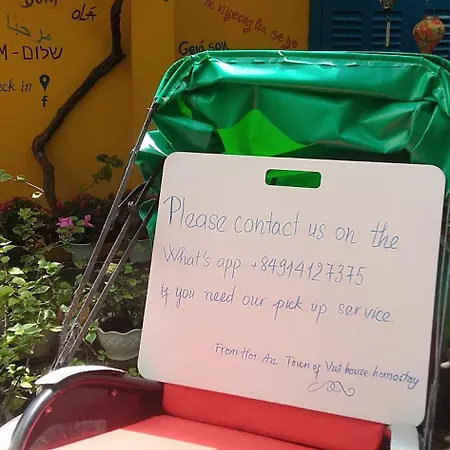 OLÁ
Annyeong ha se yo
مرحبا
שלום
Geiá sou
check in
Please contact us on the
What's app +84914127375
if you need our pick up service
From Hoi An Town of Viet house homestay